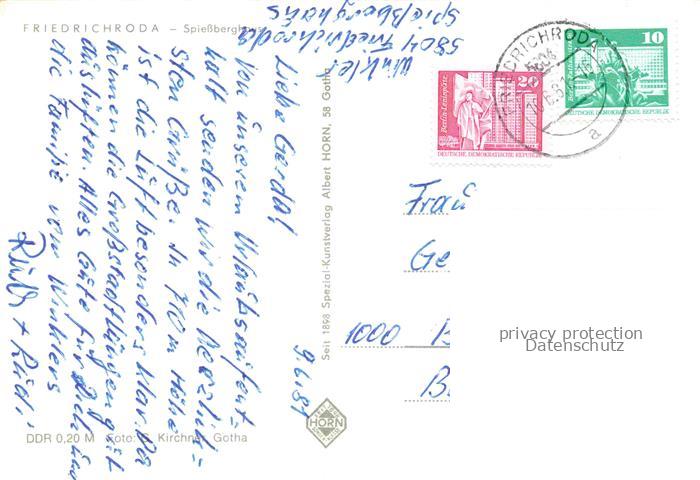 FRIEDRICHRODA – Spießberghaus
Winkler
5804 Friedrichroda
Spießberghaus
9.6.81
Liebe Gerda!
Von unserem Urlaubsaufent-
halt senden wir die herzlich-
sten Grüße. In 710 m Höhe
ist die Luft besonders klar. Da
können die Großstadtlungen gut
auslüften. Alles Gute für Dich und
die Familie von Winklers
Ruth + Rudi
DDR 0,20 M Foto: Kirchner, Gotha
Seit 1898 Spezial-Kunstverlag Albert HORN, 58 Gotha
HORN
20
Berlin-Leninplatz
DEUTSCHE DEMOKRATISCHE REPUBLIK
FRIEDRICHRODA
5804
a
10
DEUTSCHE DEMOKRATISCHE REPUBLIK
Frau
Ge
1000 B
B
privacy protection
Datenschutz